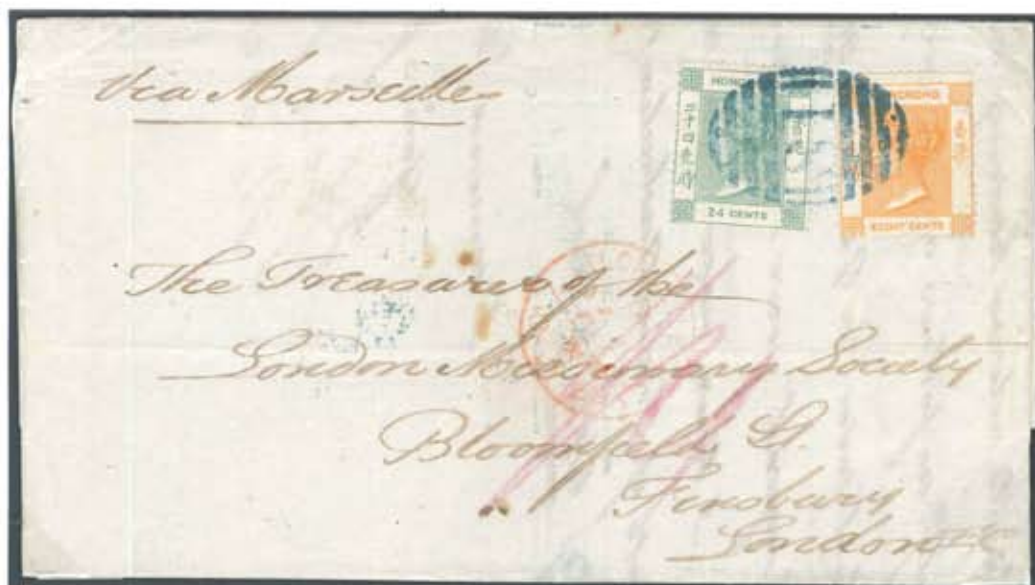 Via Marseilles
HONG
二十四
24 CENTS
EIGHT CENTS
The Treasurer of the
London Missionary Society
Bloomfield St
Finsbury
London